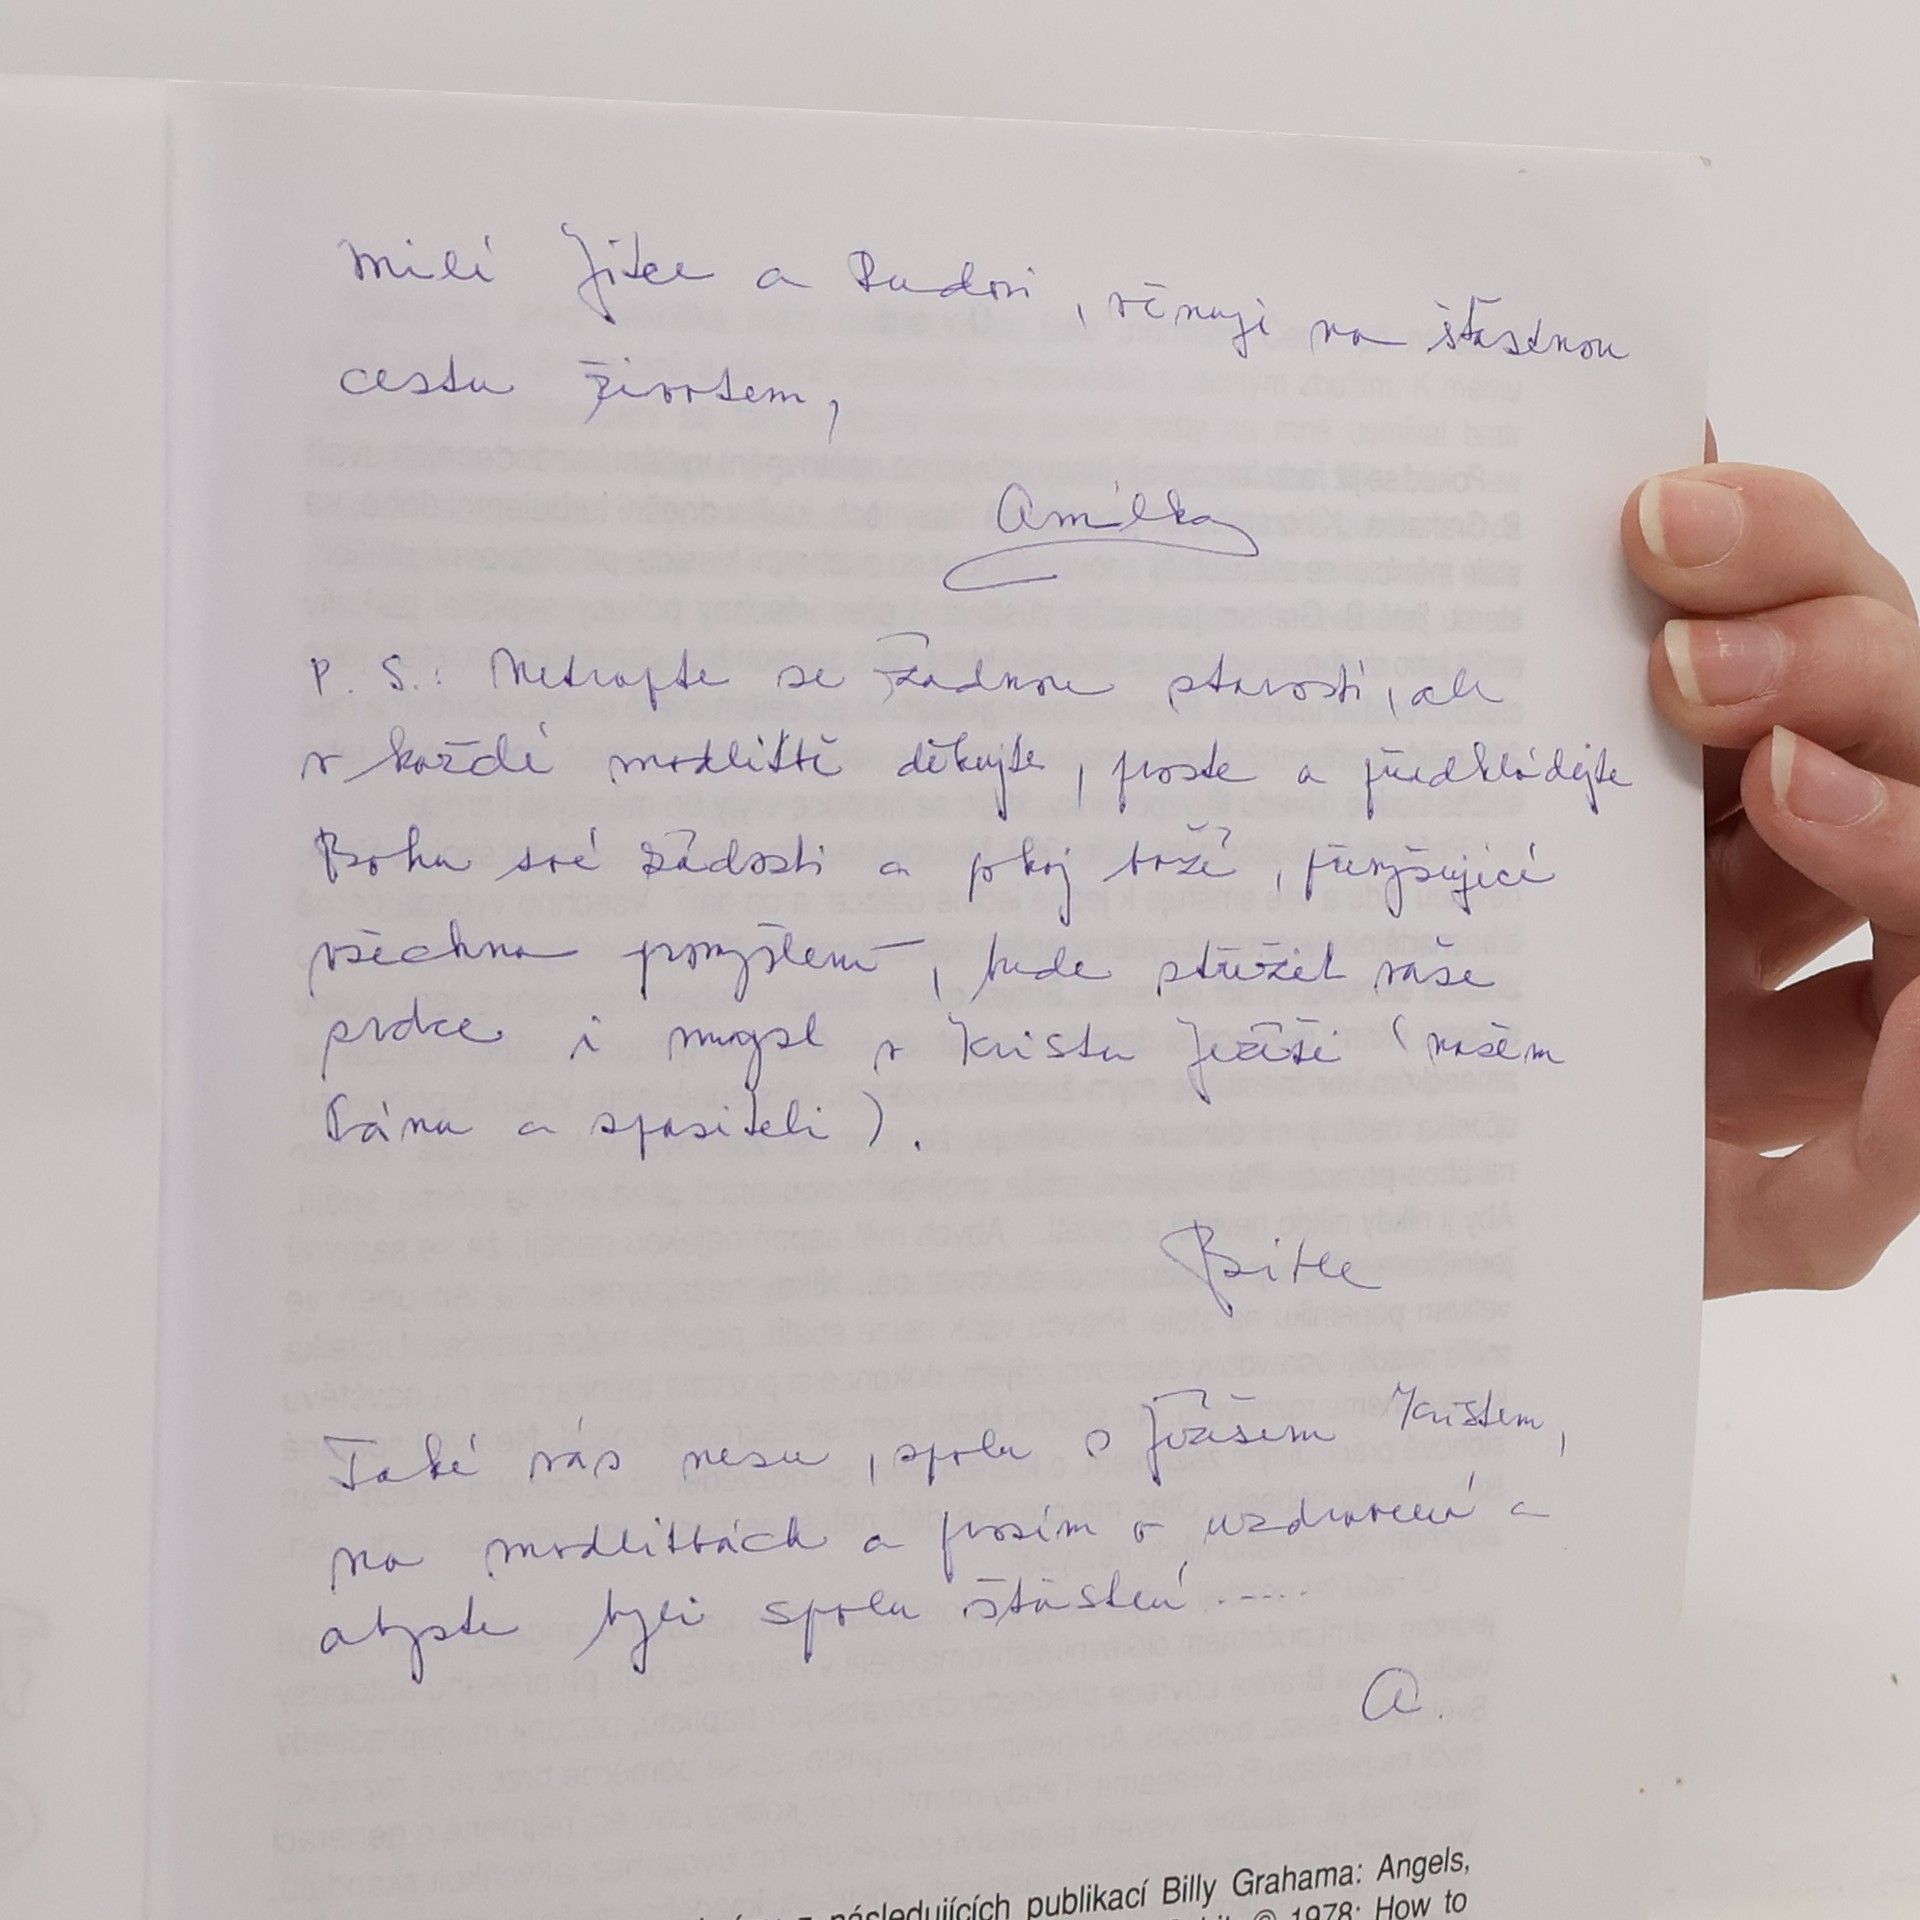 Milí Jitce a Rudovi, věnuji na šťastnou
cestu životem,
Amálka
P. S.: Netrapte se žádnou starostí, ale
v každé modlitbě děkujte, proste a předkládejte
Bohu své žádosti a pokoj boží, převyšující
všechna pomyšlení, bude střežit vaše
srdce i mysl v Kristu Ježíši (našem
Pánu a spasiteli).
Také vás nesu, spolu s Ježíšem Kristem,
na modlitbách a prosím o uzdravení a
abyste byli spolu šťastní .....
A.
následujících publikací Billy Grahama: Angels,
© 1978; How to